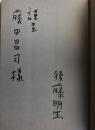 後藤明生
藤田昌司様